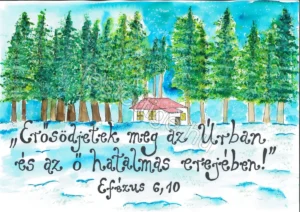 „Erősödjetek meg az Úrban
és az ő hatalmas erejében!"
Efézus 6,10